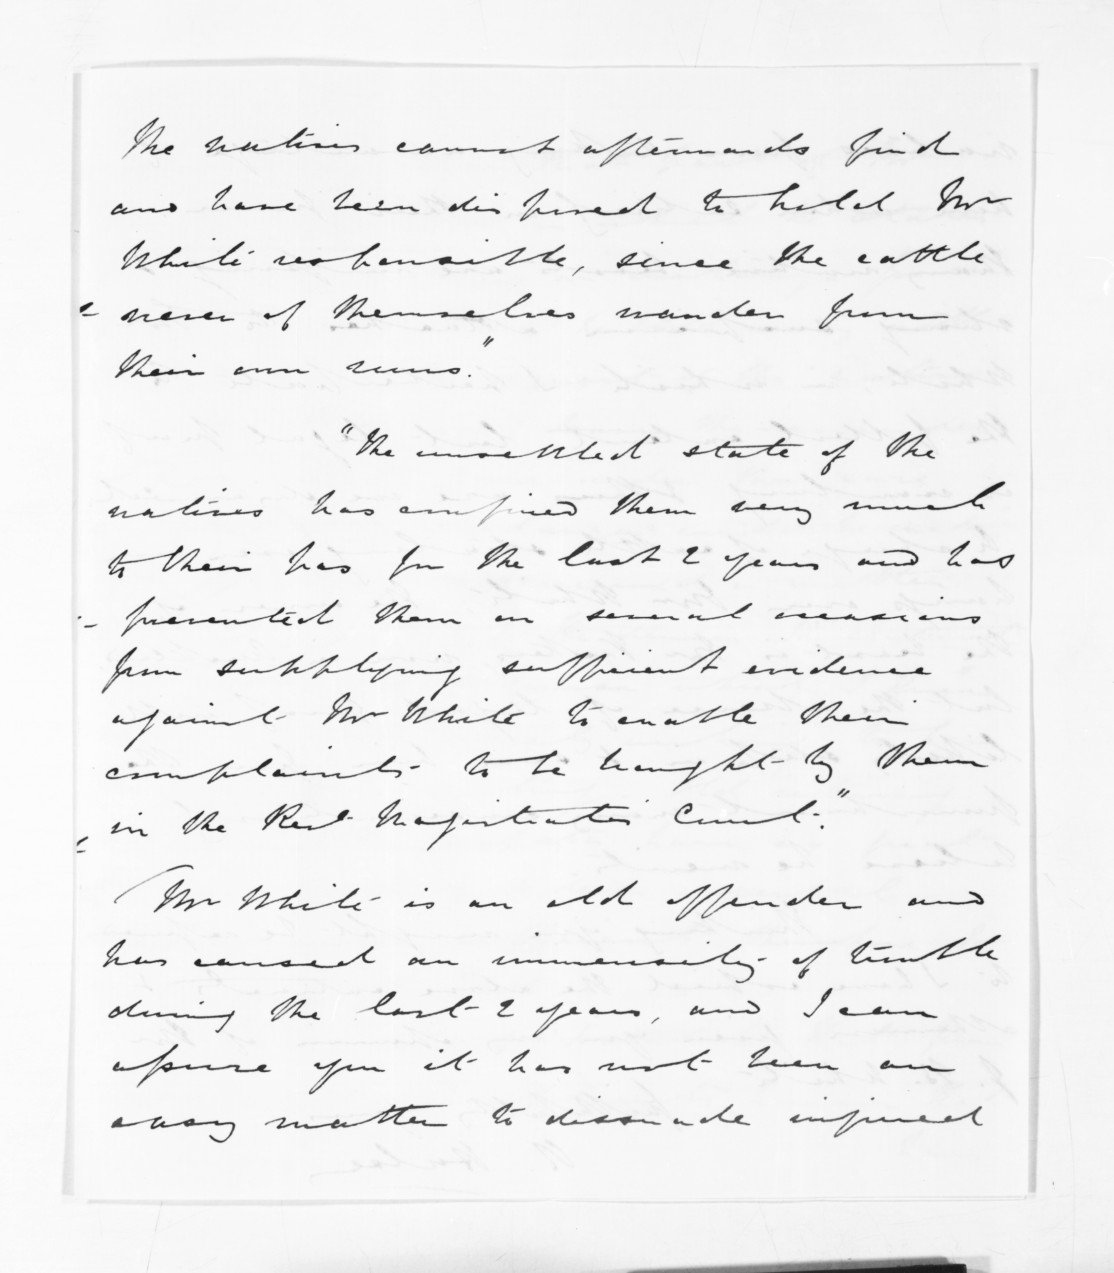 The natives cannot afterwards find
and have been disposed to hold Mr
White responsible, since the cattle
never of themselves wander from
their own runs."
"The unsettled state of the
natives has confined them very much
to their pas for the last 2 years and has
prevented them on several occasions
from supplying sufficient evidence
against Mr White to enable their
complaints to be brought by them
in the Rest Magistrates Court."
Mr White is an old offender and
has caused an immensity of trouble
during the last 2 years, and I can
assure you it has not been an
easy matter to dissuade injured